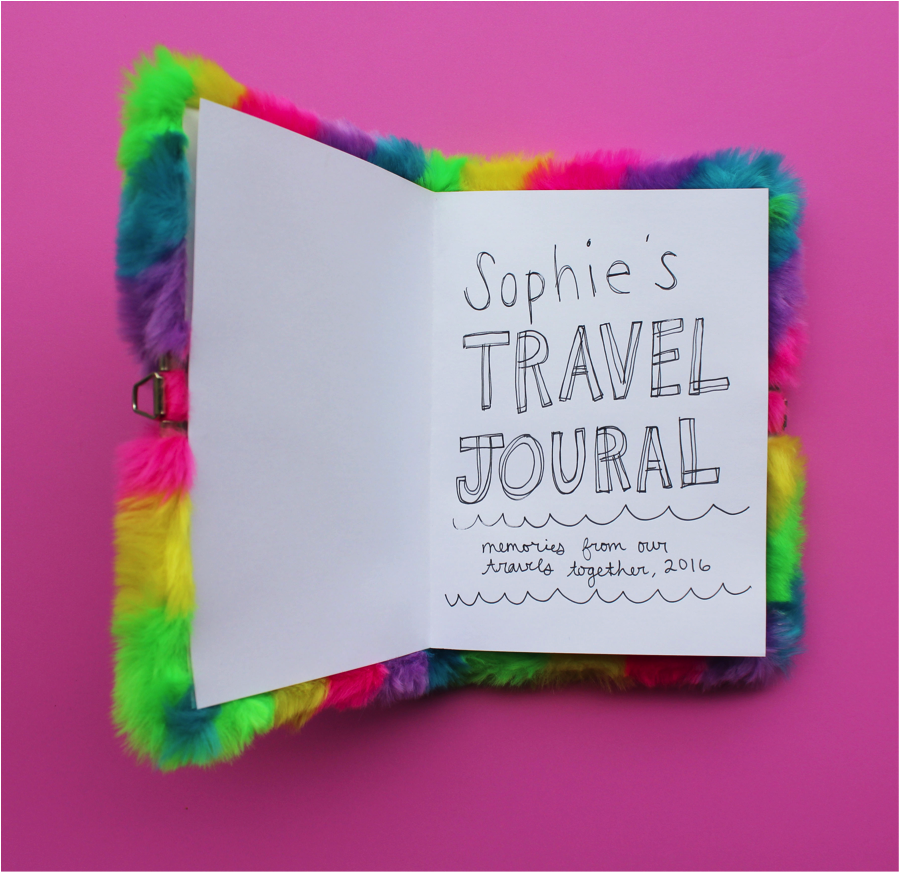 Sophie's
TRAVEL
JOURAL
memories from our
travels together, 2016